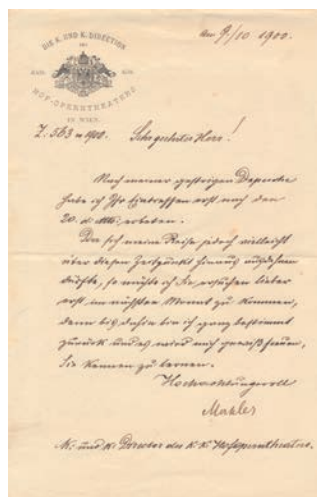 DIE K. UND K. DIRECTION
DES
KAIS. KÖN.
HOF-OPERNTHEATERS
IN WIEN.
Wien 9/10 1900.
Z. 563 a 1900. Sehr geehrter Herr!
Nach meiner gestrigen Depesche
habe ich Ihr Eintreffen erst nach dem
20. d. Mts. erbeten.
Da sich meine Reise jedoch vielleicht
über diesen Zeitpunkt hinaus ausdehnen
dürfte, so möchte ich Sie ersuchen lieber
erst im nächsten Monat zu kommen,
denn bis dahin bin ich ganz bestimmt
zurück und es wird mich gewiß freuen,
Sie kennen zu lernen.
Hochachtungsvoll
Mahler
K. und K. Director des K. K. Hofoperntheaters.